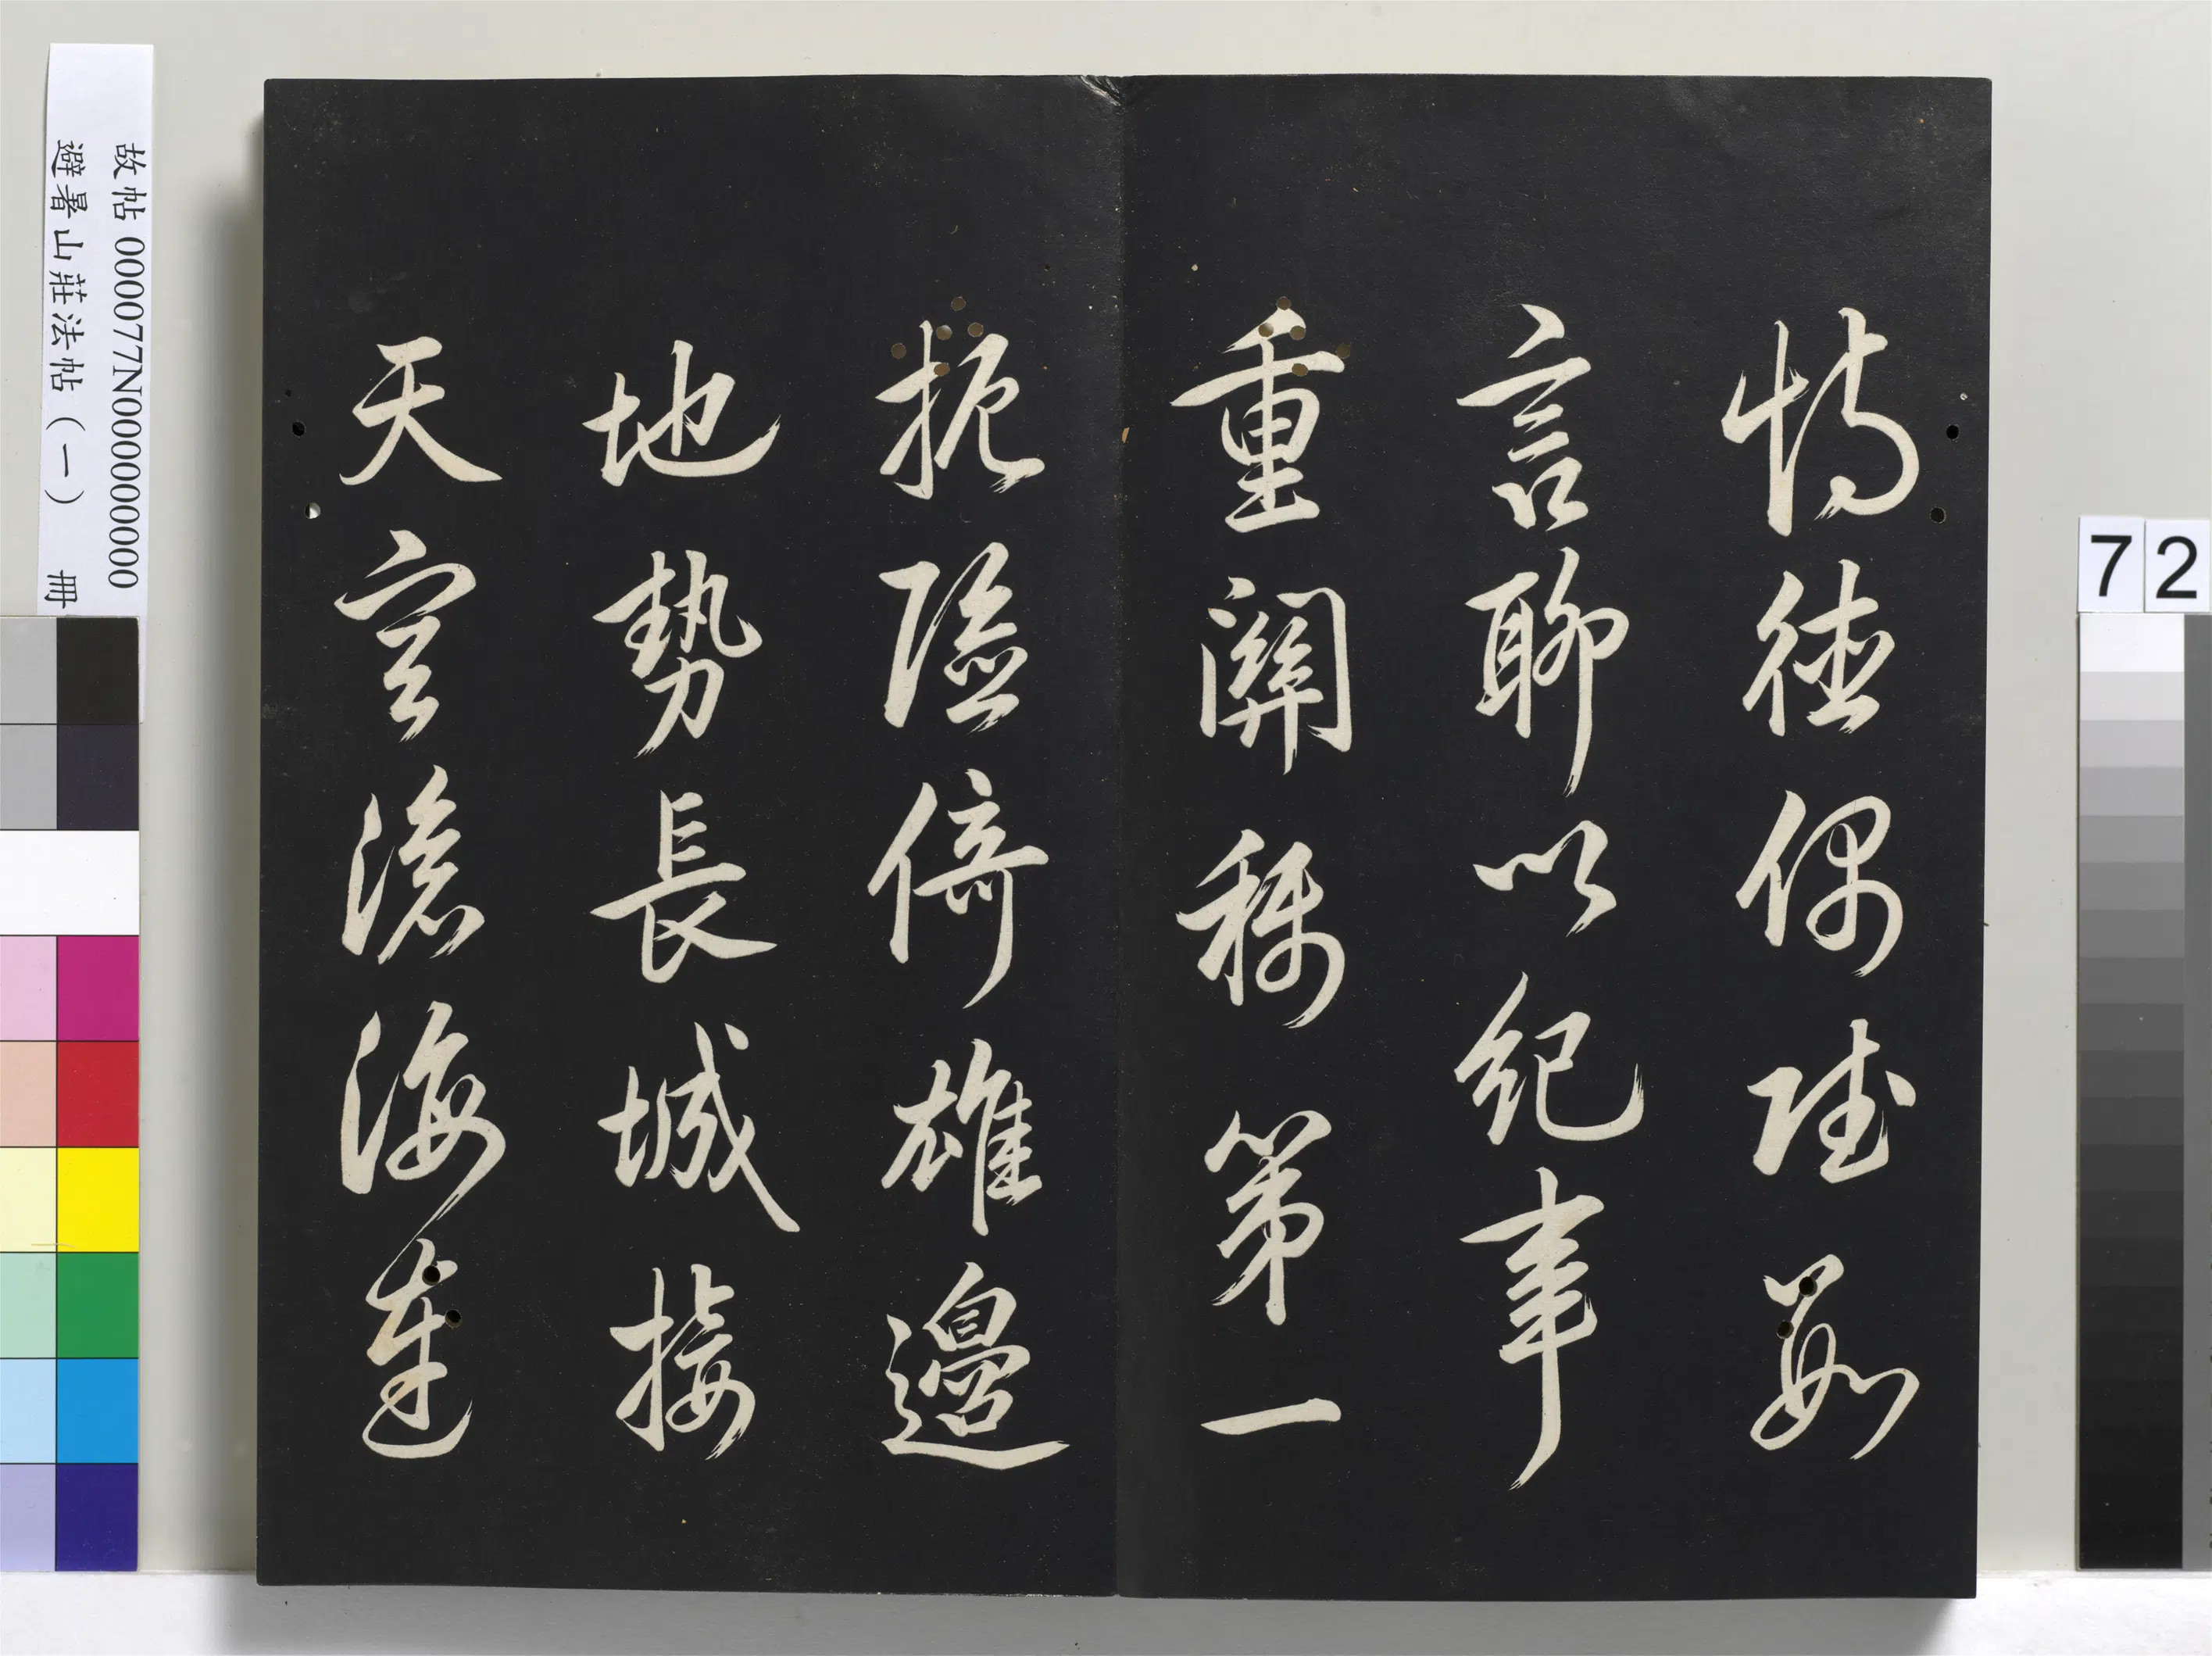 恃德偶賦數
言聊以紀事
重關稱第一
扼險倚雄邊
地勢長城接
天空滄海連
故帖 000077N000000000
避暑山莊法帖（一） 冊
72